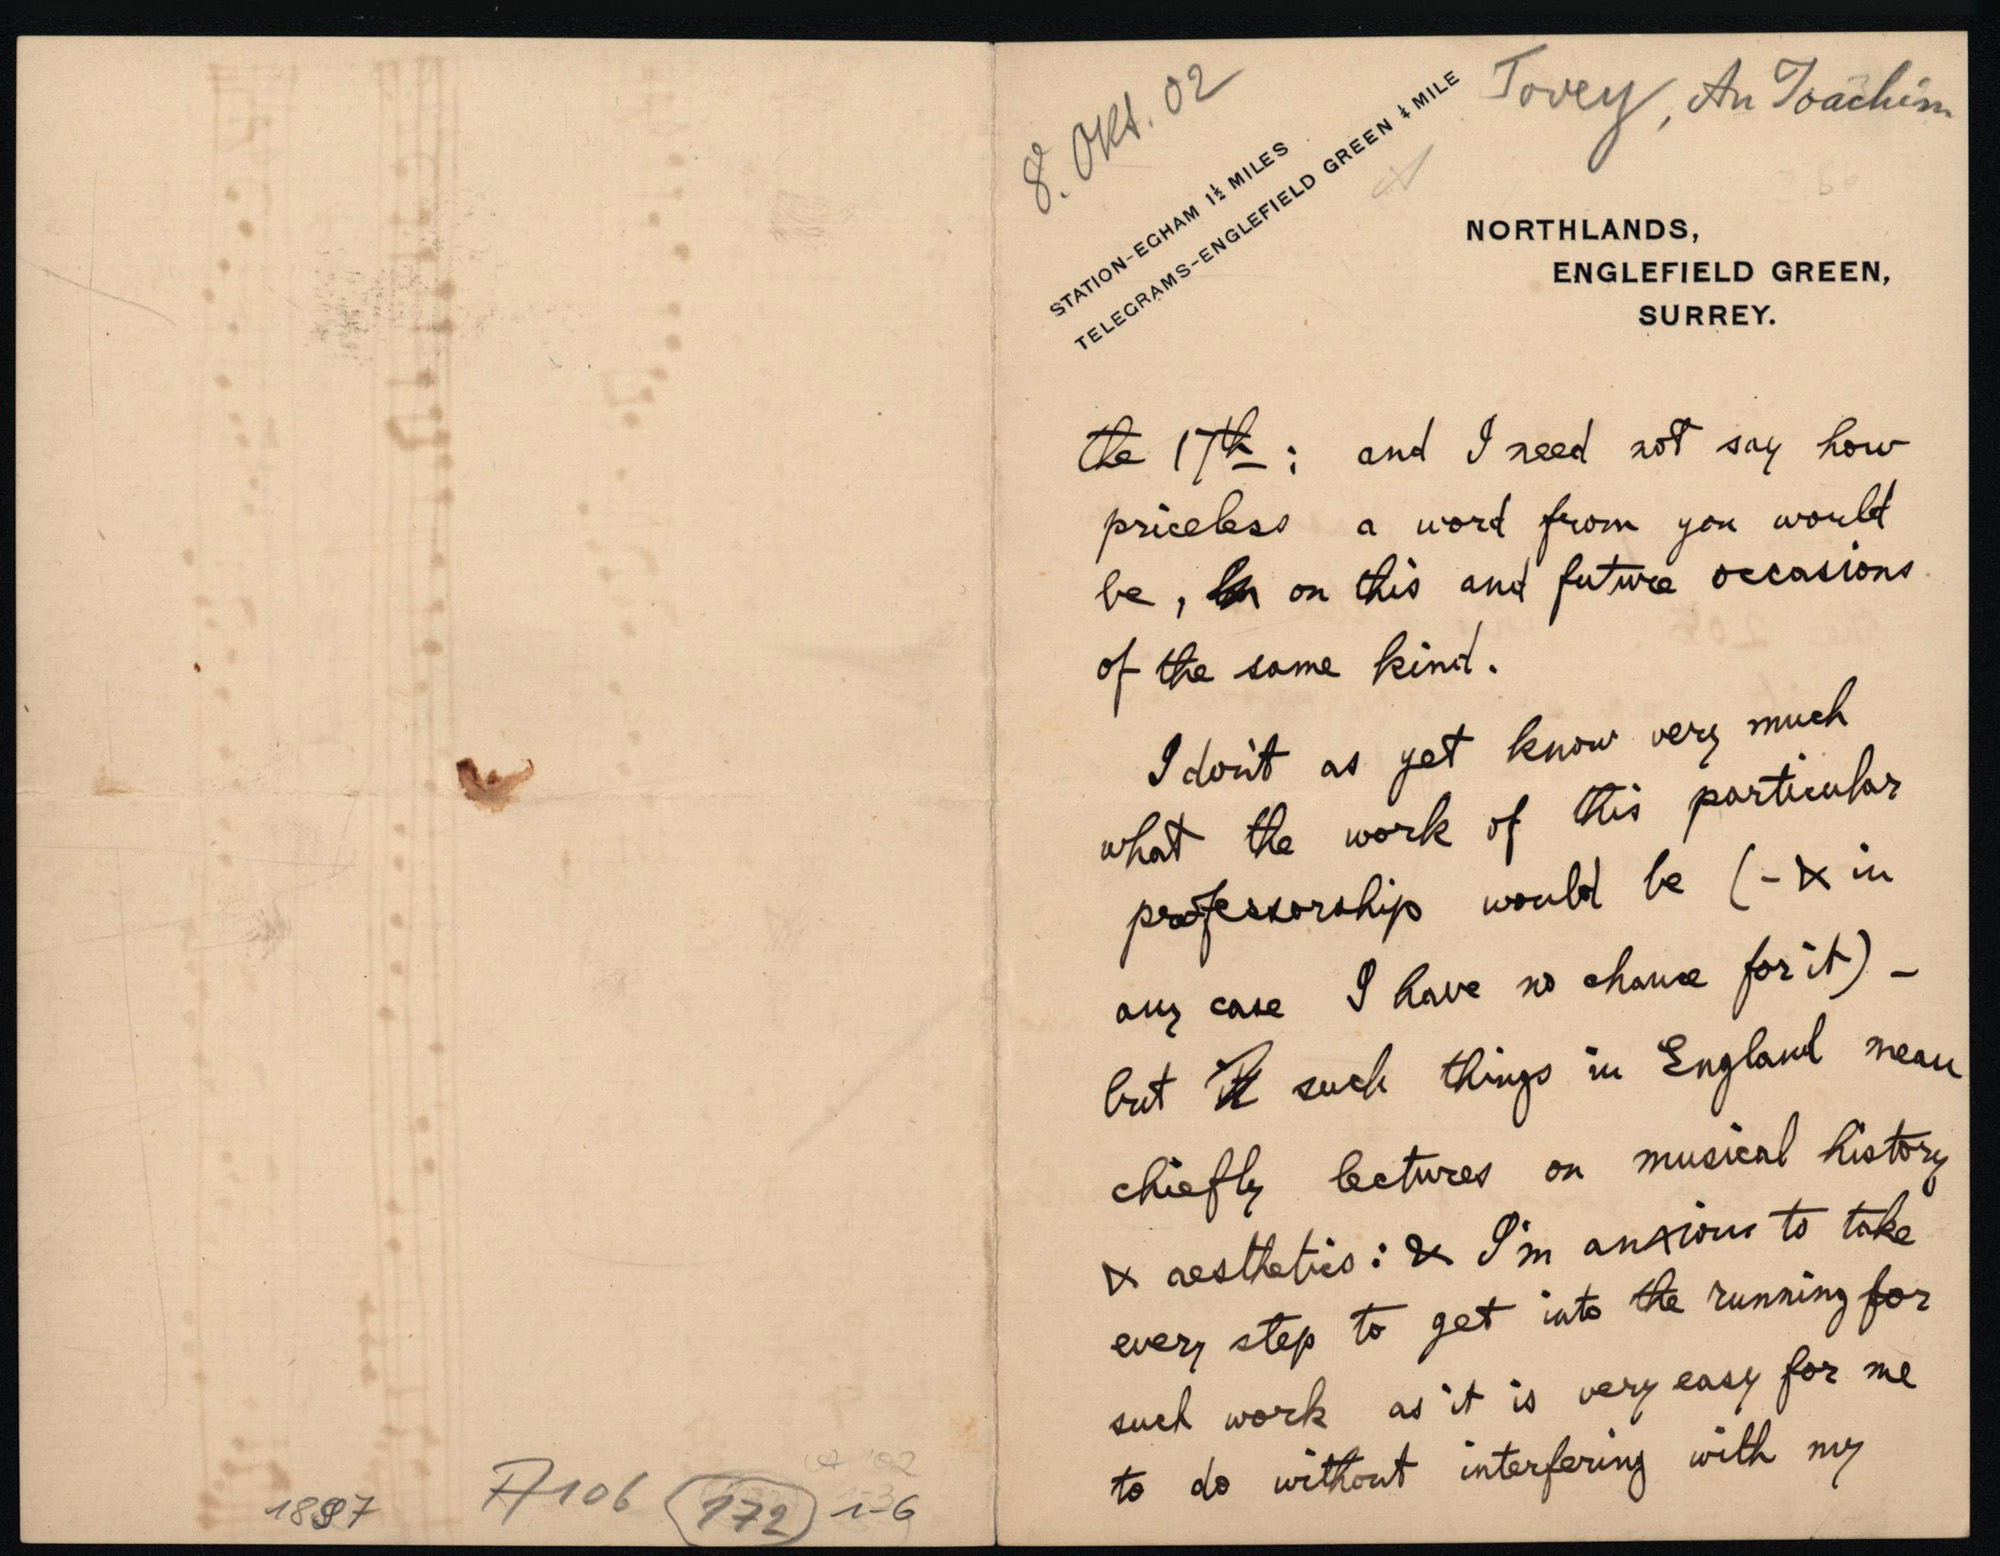 1897
A 106
172
1-6
8. Okt. 02
Tovey, An Joachim
STATION-EGHAM 1½ MILES
TELEGRAMS-ENGLEFIELD GREEN ¼ MILE
NORTHLANDS,
ENGLEFIELD GREEN,
SURREY.
the 17th : and I need not say how
priceless a word from you would
be, on this and future occasions
of the same kind.
I don't as yet know very much
what the work of this particular
professorship would be (- & in
any case I have no chance for it) -
but such things in England mean
chiefly lectures on musical history
& aesthetics : & I'm anxious to take
every step to get into the running for
such work as it is very easy for me
to do without interfering with my